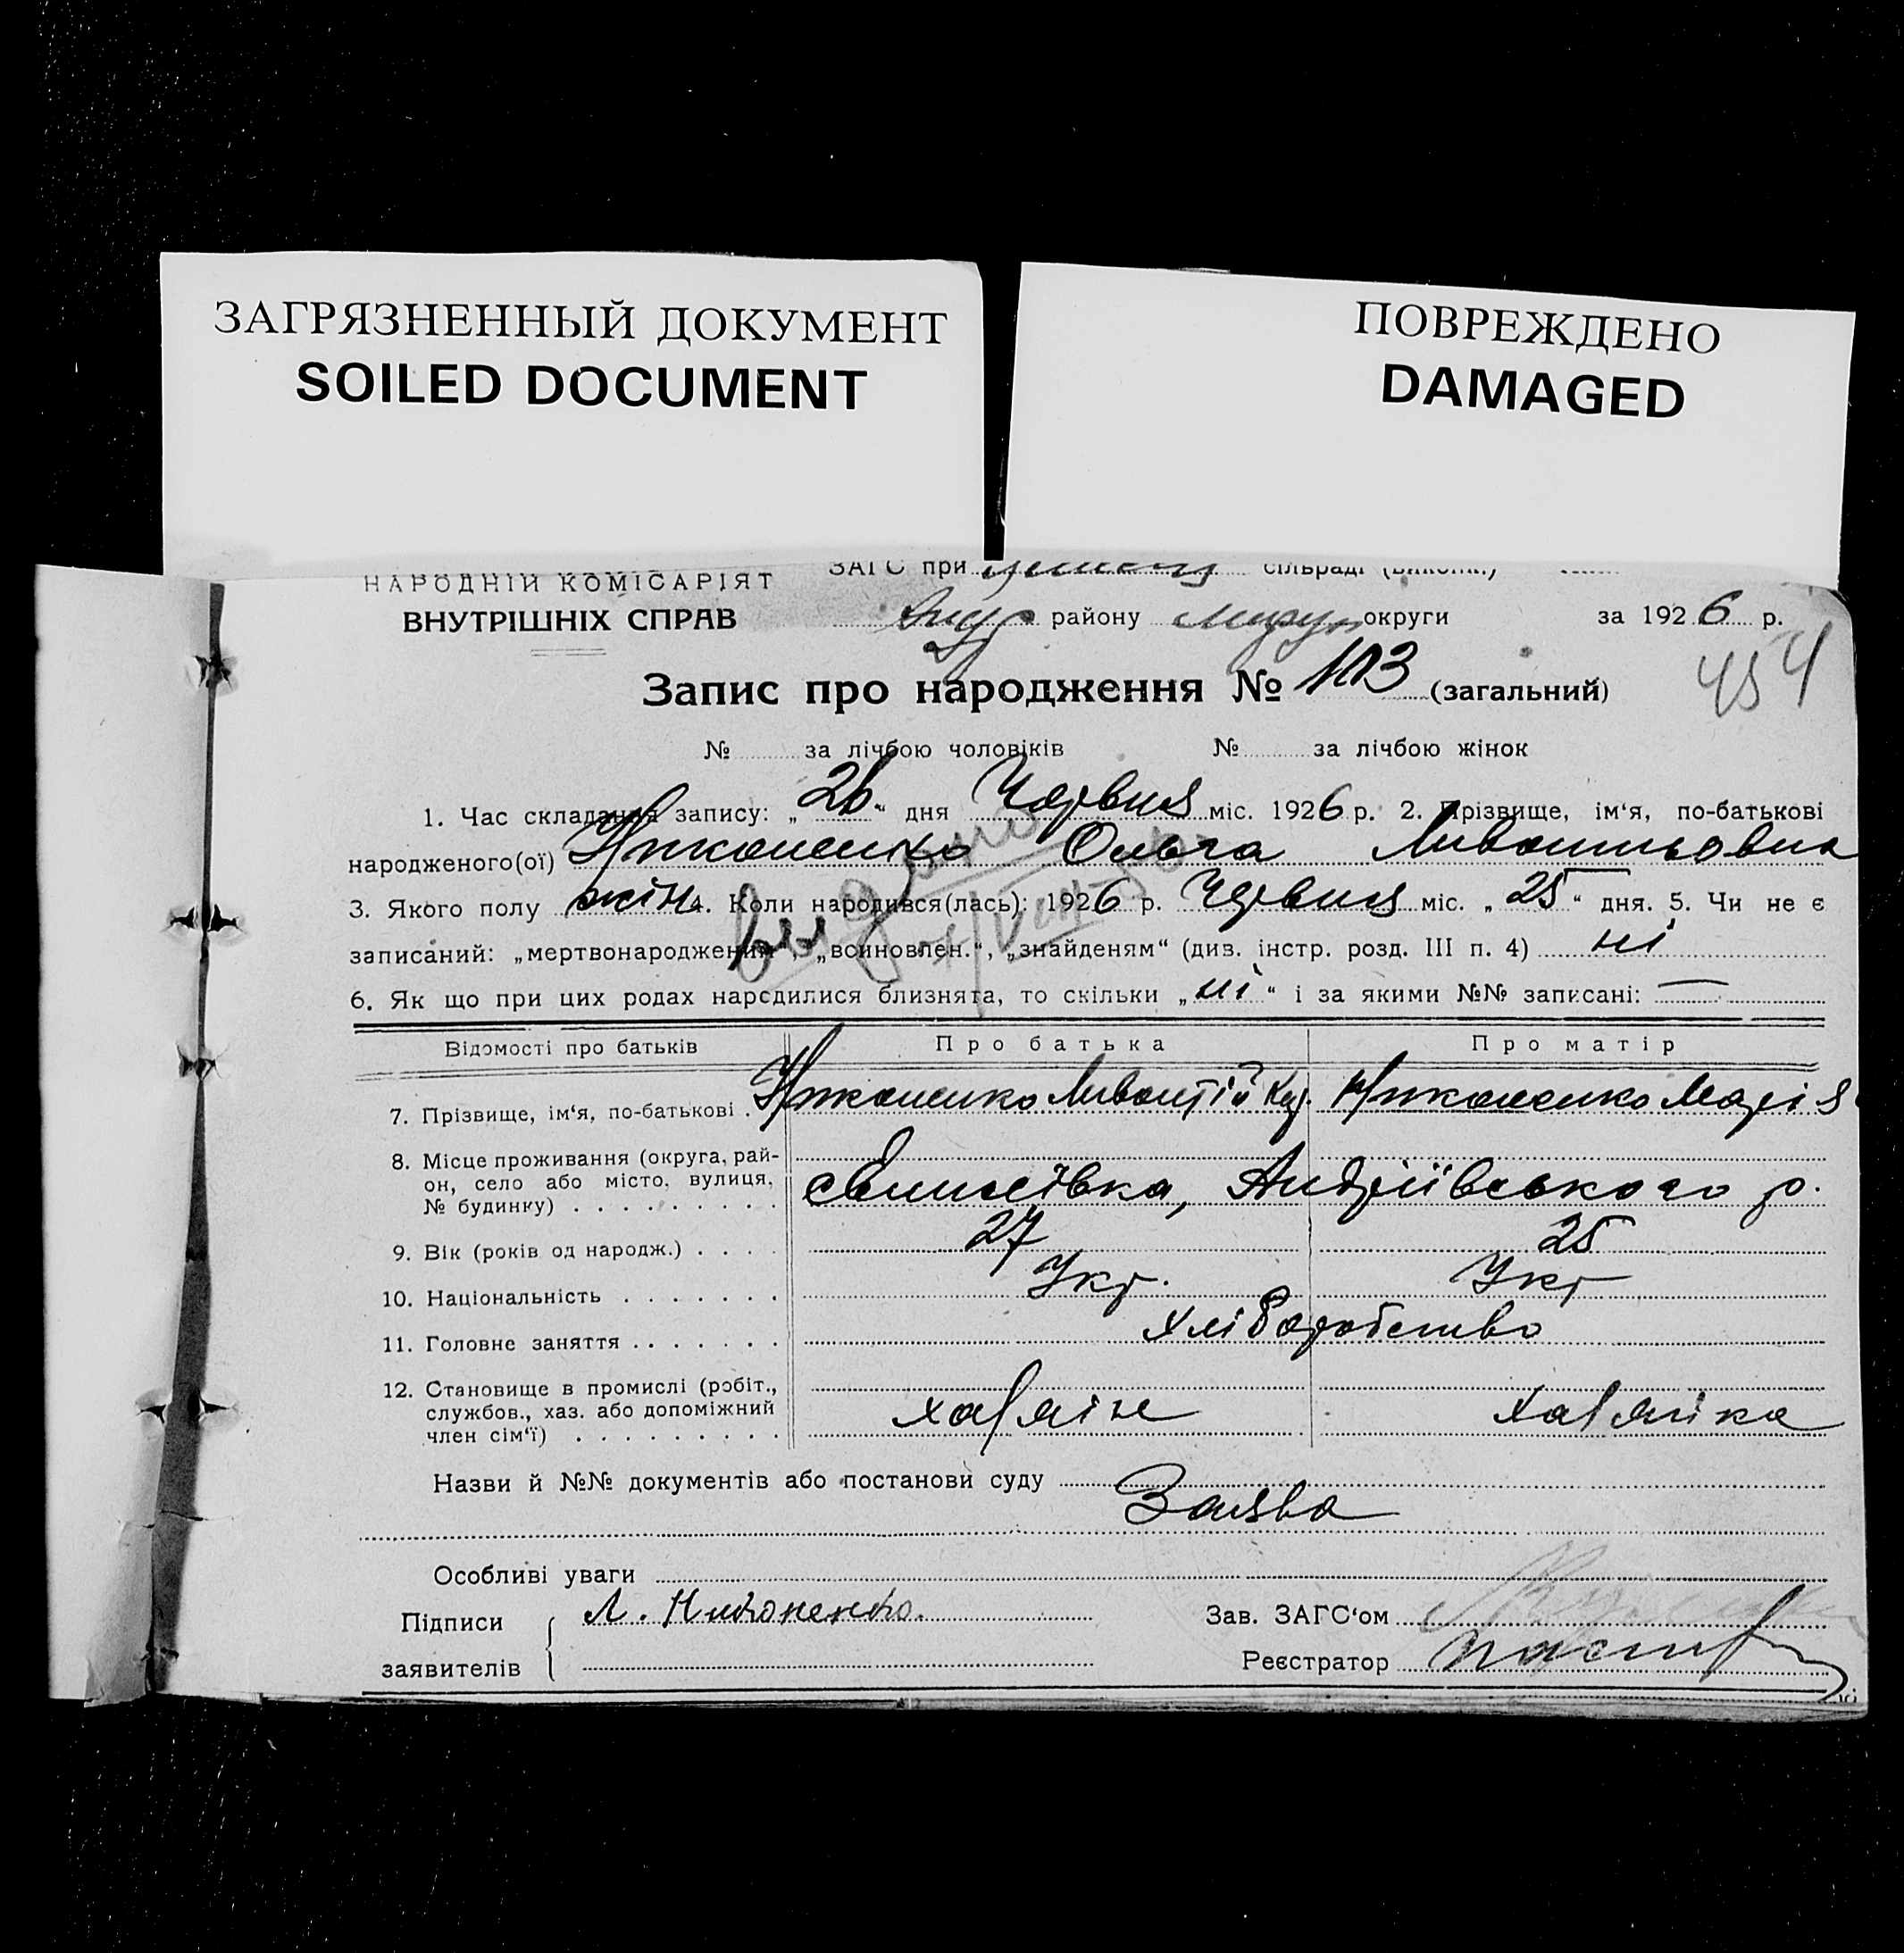 ЗАГРЯЗНЕННЫЙ ДОКУМЕНТ
SOILED DOCUMENT
ПОВРЕЖДЕНО
DAMAGED
НАРОДНІЙ КОМІСАРІЯТ
ВНУТРІШНІХ СПРАВ
ЗАГС при сільраді (виконк.)
району округи за 1926 р.
454
Запис про народження № 103 (загальний)
№ за лічбою чоловіків № за лічбою жінок
1. Час складання запису: „26“ дня Червня міс. 1926 р. 2. Прізвище, ім‘я, по-батькові
народженого(ої) Никоненко Ольга
3. Якого полу жін. 4. Коли народився(лась): 1926 р. Червня міс. „25“ дня. 5. Чи не є
записаний: „мертвонароджений“, „всиновлен.“, „знайденям“ (див. інстр. розд. III п. 4) ні
6. Як що при цих родах народилися близнята, то скільки „ні“ і за якими №№ записані: —
Відомості про батьків Про батька Про матір
7. Прізвище, ім‘я, по-батькові . Никоненко Ливонтій Никоненко Марія
8. Місце проживання (округа, рай-
он, село або місто, вулиця,
№ будинку) . . . . . . . . . Андріївського р.
9. Вік (років од народж.) . . . . 27 25
10. Національність . . . . . . . Укр. Укр
11. Головне заняття . . . . . . . Хліборобство
12. Становище в промислі (робіт.,
службов., хаз. або допоміжний
член сім‘ї) . . . . . . . . . хазяїн хазяйка
Назви й №№ документів або постанови суду
Заява
Особливі уваги
Підписи Л. Никоненко. Зав. ЗАГС‘ом
заявителів Реєстратор